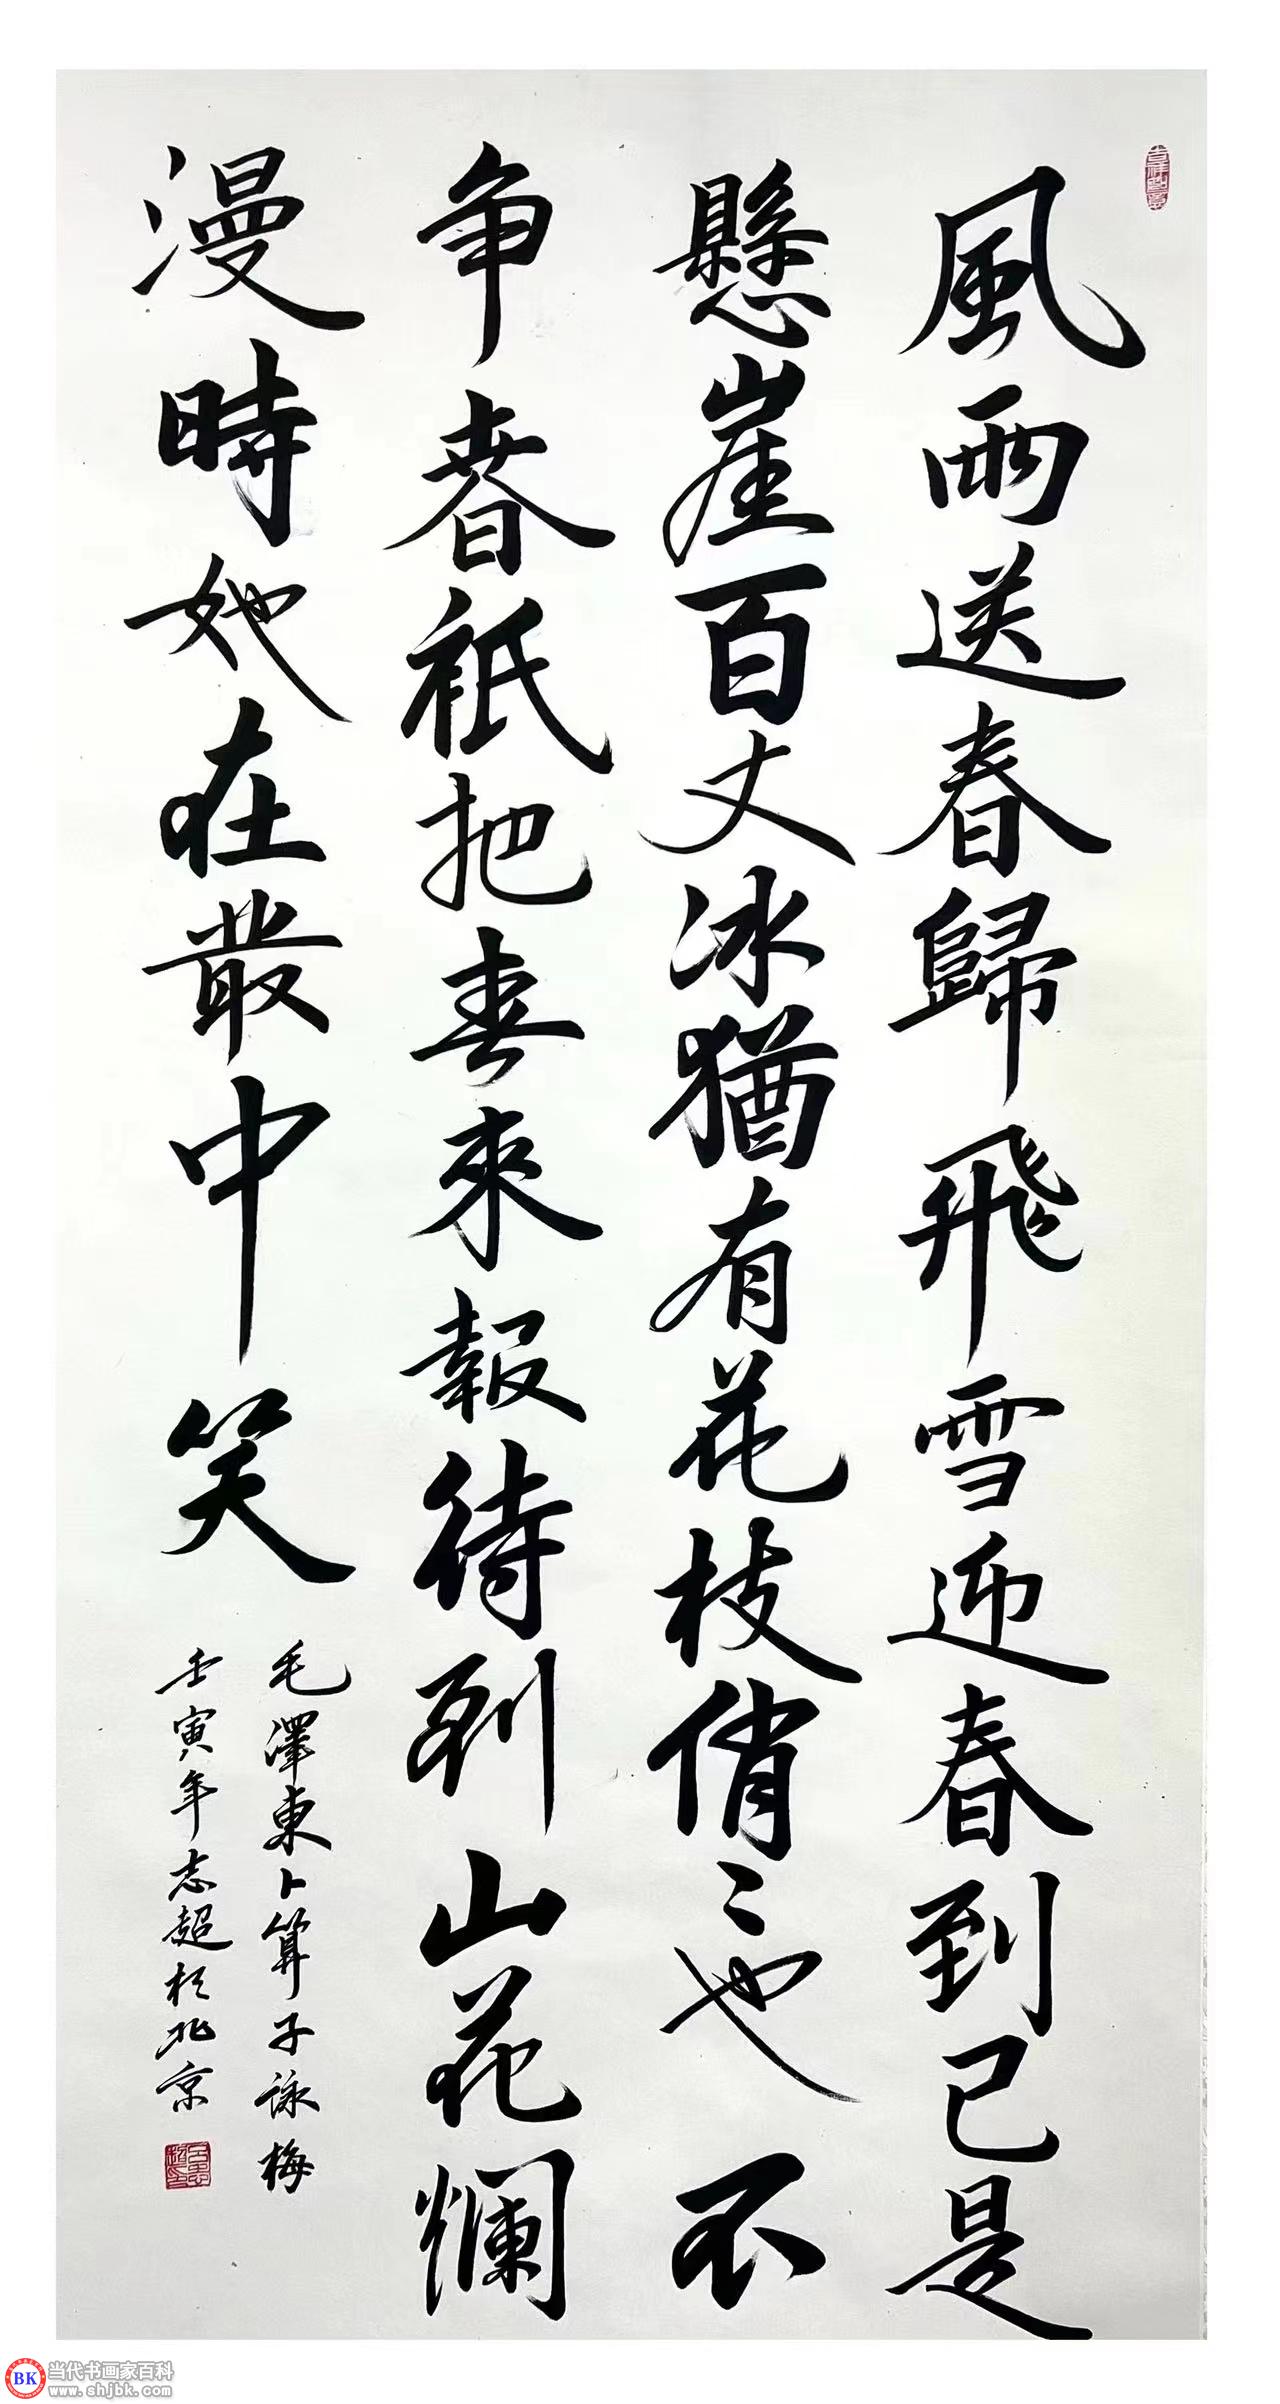 吉祥如意
風雨送春歸飛雪迎春到已是
懸崖百丈冰猶有花枝俏〻也不
争春祇把春來報待到山花爛
漫時她在叢中笑
毛澤東卜算子詠梅
壬寅年志超於北京
BK
当代书画家百科
www.shjbk.com